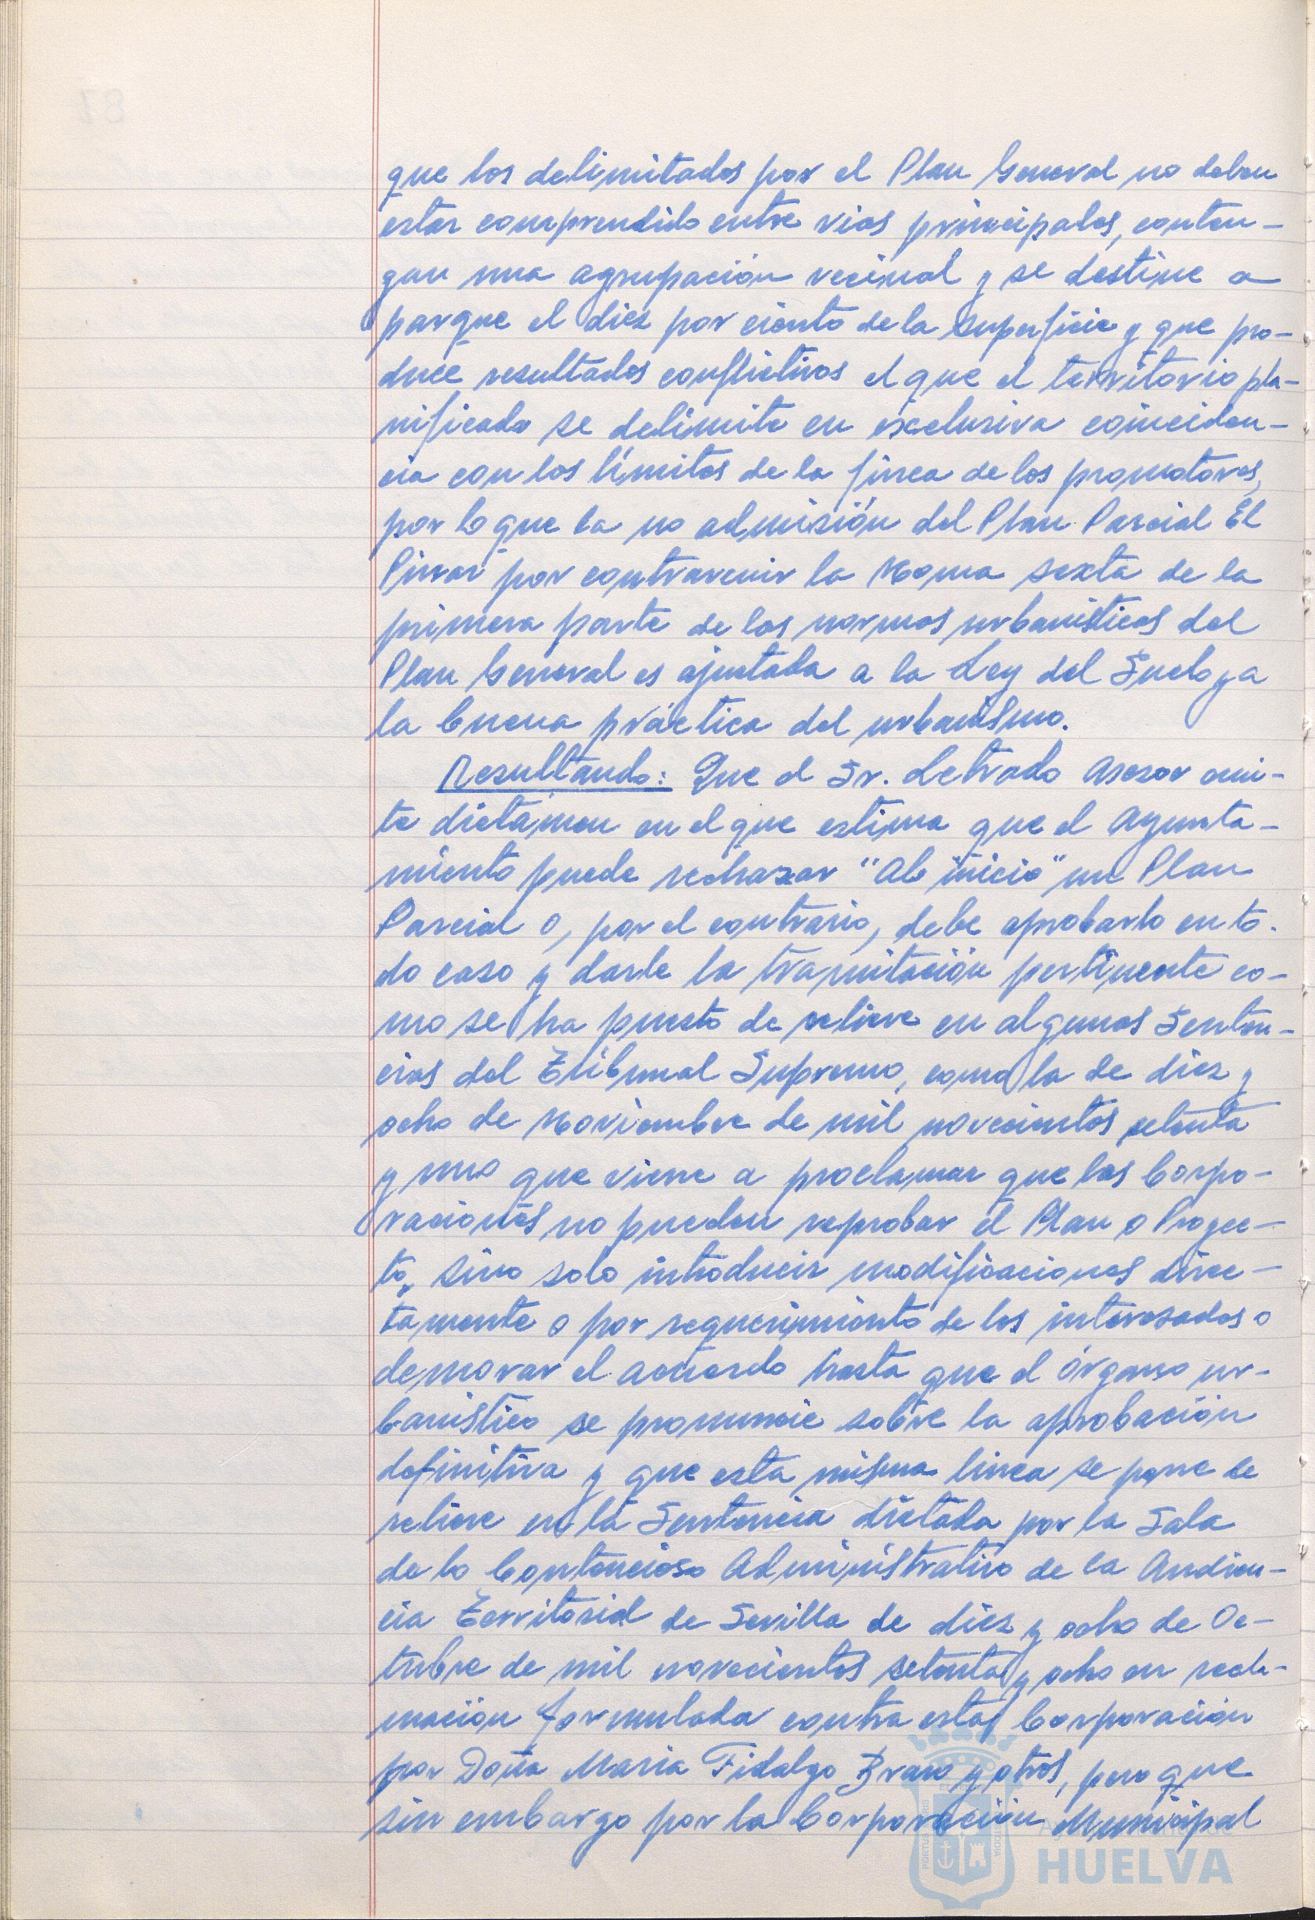 que los delimitados por el Plan General no deben
estar comprendido entre vias principales, conten-
gan una agrupación vecinal y se destine a
parque el diez por ciento de la superficie y que pro-
duce resultados conflictivos el que el territorio pla-
nificado se delimite en exclusiva coinciden-
cia con los límites de la finca de los promotores,
por lo que la no admisión del Plan Parcial El
Pinar por contravenir la Norma sexta de la
primera parte de las normas urbanísticas del
Plan General es ajustada a la Ley del Suelo y a
la buena práctica del urbanismo.
Resultando: Que el Sr. Letrado Asesor emi-
te dictámen en el que estima que el Ayunta-
miento puede rechazar "Ab inicio" un Plan
Parcial o, por el contrario, debe aprobarlo en to-
do caso y darle la tramitación pertinente co-
mo se ha puesto de relieve en algunas Senten-
cias del Tribunal Supremo, como la de diez y
ocho de Noviembre de mil novecientos setenta
y uno que viene a proclamar que las Corpo-
raciones no pueden reprobar el Plan o Proyec-
to, sino solo introducir modificaciones direc-
tamente o por requerimiento de los interesados o
demorar el acuerdo hasta que el órgano ur-
banístico se pronuncie sobre la aprobación
definitiva y que esta misma linea se pone de
relieve en la Sentencia dictada por la Sala
de lo Contencioso Administrativo de la Audien-
cia Territorial de Sevilla de diez y ocho de Oc-
tubre de mil novecientos setenta y ocho en recla-
mación formulada contra esta Corporación
por Doña Maria Fidalgo Bravo y otros, pero que
sin embargo por la Corporación Municipal
HUELVA